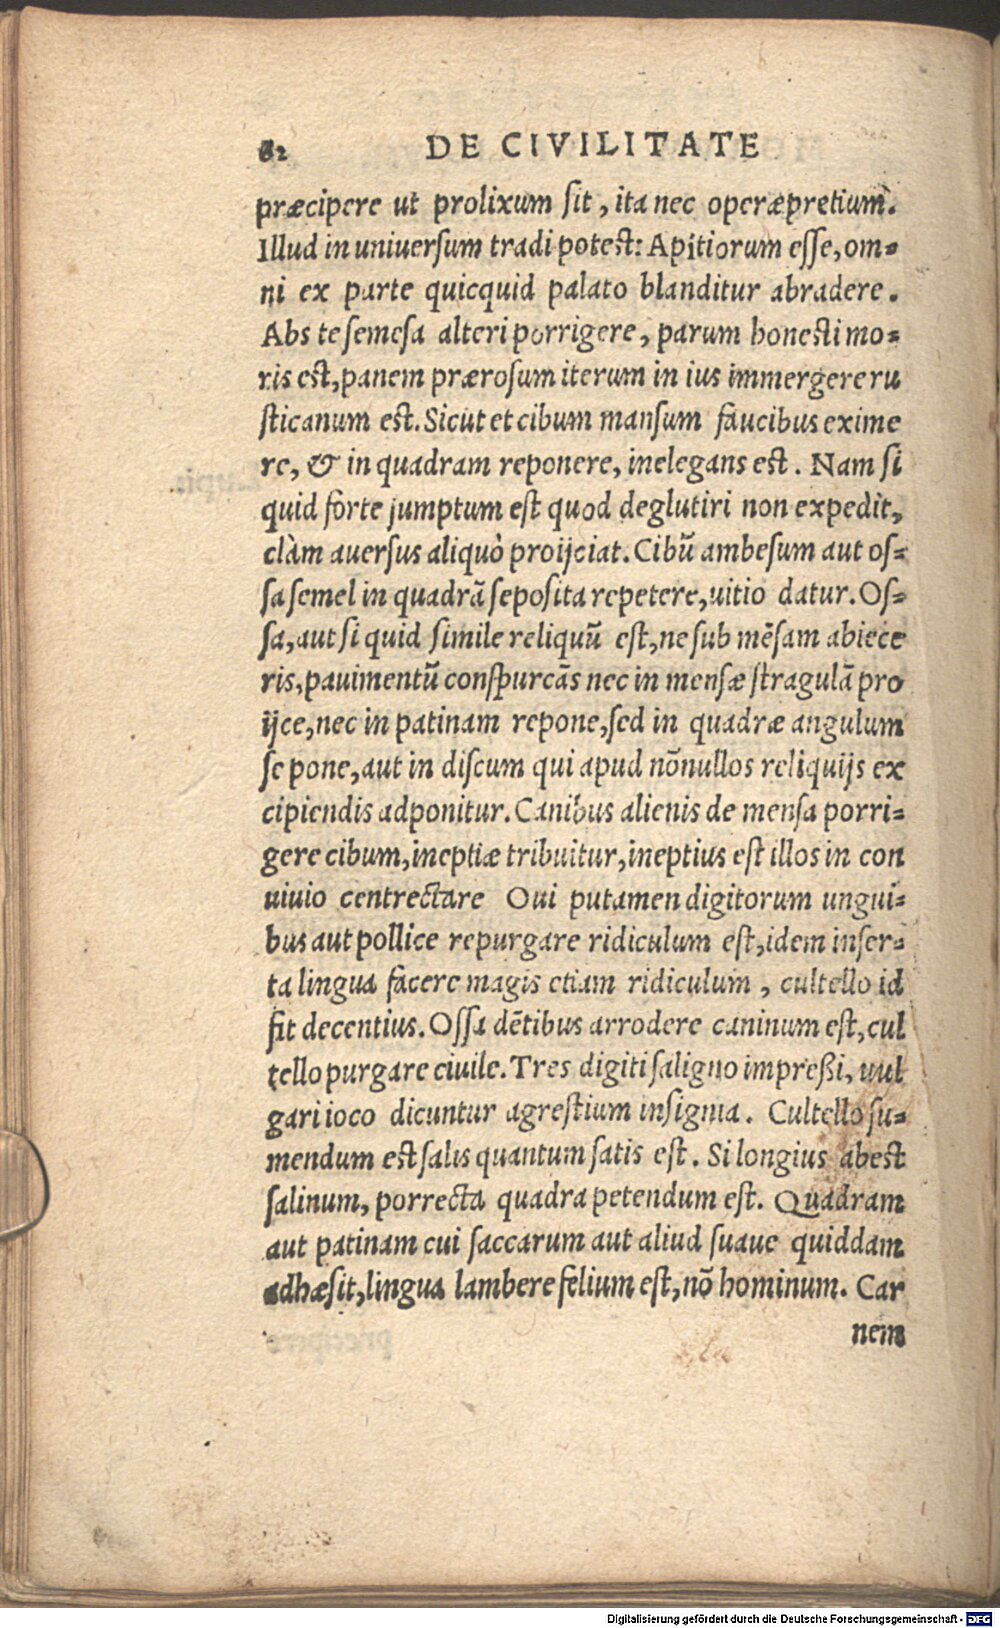 82 DE CIVILITATE
præcipere ut prolixum sit, ita nec operæpretium.
Illud in universum tradi potest: Apitiorum esse, om=
ni ex parte quicquid palato blanditur abradere.
Abs te semesa alteri porrigere, parum honesti mo=
ris est, panem prærosum iterum in ius immergere ru
sticanum est. Sicut et cibum mansum faucibus exime
re, & in quadram reponere, inelegans est. Nam si
quid forte sumptum est quod deglutiri non expedit,
clàm aversus aliquò proijciat. Cibū ambesum aut os=
sa semel in quadrā seposita repetere, uitio datur. Os=
sa, aut si quid simile reliquū est, ne sub mēsam abiece
ris, pauimentū conspurcās nec in mensæ stragulā pro
ijce, nec in patinam repone, sed in quadræ angulum
se pone, aut in discum qui apud nōnullos reliquijs ex
cipiendis adponitur. Canibus alienis de mensa porri=
gere cibum, ineptiæ tribuitur, ineptius est illos in con
uiuio centrectare Oui putamen digitorum ungui=
bus aut pollice repurgare ridiculum est, idem inser=
ta lingua facere magis etiam ridiculum, cultello id
fit decentius. Ossa dētibus arrodere caninum est, cul
tello purgare ciuile. Tres digiti saligno impreßi, uul
gari ioco dicuntur agrestium insignia. Cultello su=
mendum est salis quantum satis est. Si longius abest
salinum, porrecta quadra petendum est. Quadram
aut patinam cui saccarum aut aliud suaue quiddam
adhæsit, lingua lambere felium est, nō hominum. Car
nem
Digitalisierung gefördert durch die Deutsche Forschungsgemeinschaft - DFG